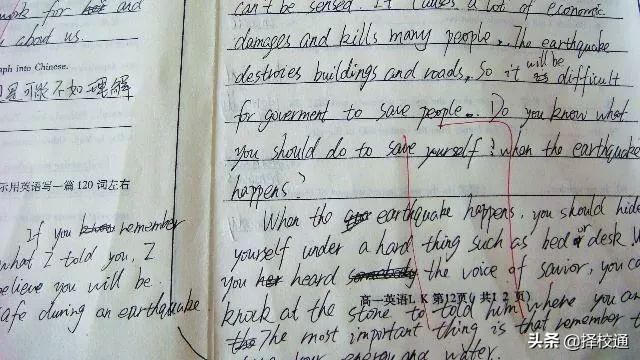 for her and
about us.
ph into Chinese.
可能不如理解
示用英语写一篇 120 词左右
If you know remember
what I told you, I
believe you will be
safe during an earthquake
can't be sensed. It causes a lot of economic
damages and kills many people. The earthquake
destroies buildings and roads, So it will be difficult
for goverment to save people. Do you know what
you should do to save yourself? when the earthquake
happens?
When the earthquake happens, you should hide
yourself under a hard thing such as bed or desk.
you her heard somebody the voice of savior, you ca
knock at the stone to told him where you an
The The most important thing is that remember t
your energy and water.
高一英语L K 第12页(共1 2 页)
头条 @择校通